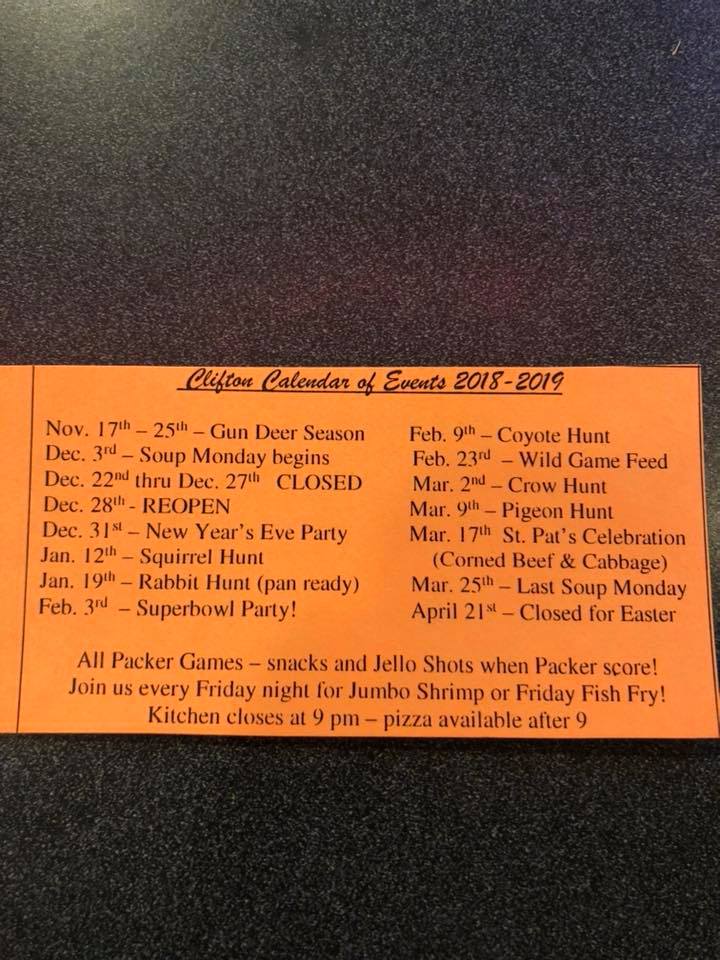 Clifton Calendar of Events 2018-2019
Nov. 17th – 25th – Gun Deer Season
Dec. 3rd – Soup Monday begins
Dec. 22nd thru Dec. 27th CLOSED
Dec. 28th - REOPEN
Dec. 31st – New Year's Eve Party
Jan. 12th – Squirrel Hunt
Jan. 19th – Rabbit Hunt (pan ready)
Feb. 3rd – Superbowl Party!
Feb. 9th – Coyote Hunt
Feb. 23rd – Wild Game Feed
Mar. 2nd – Crow Hunt
Mar. 9th – Pigeon Hunt
Mar. 17th St. Pat's Celebration
(Corned Beef & Cabbage)
Mar. 25th – Last Soup Monday
April 21st – Closed for Easter
All Packer Games – snacks and Jello Shots when Packer score!
Join us every Friday night for Jumbo Shrimp or Friday Fish Fry!
Kitchen closes at 9 pm – pizza available after 9